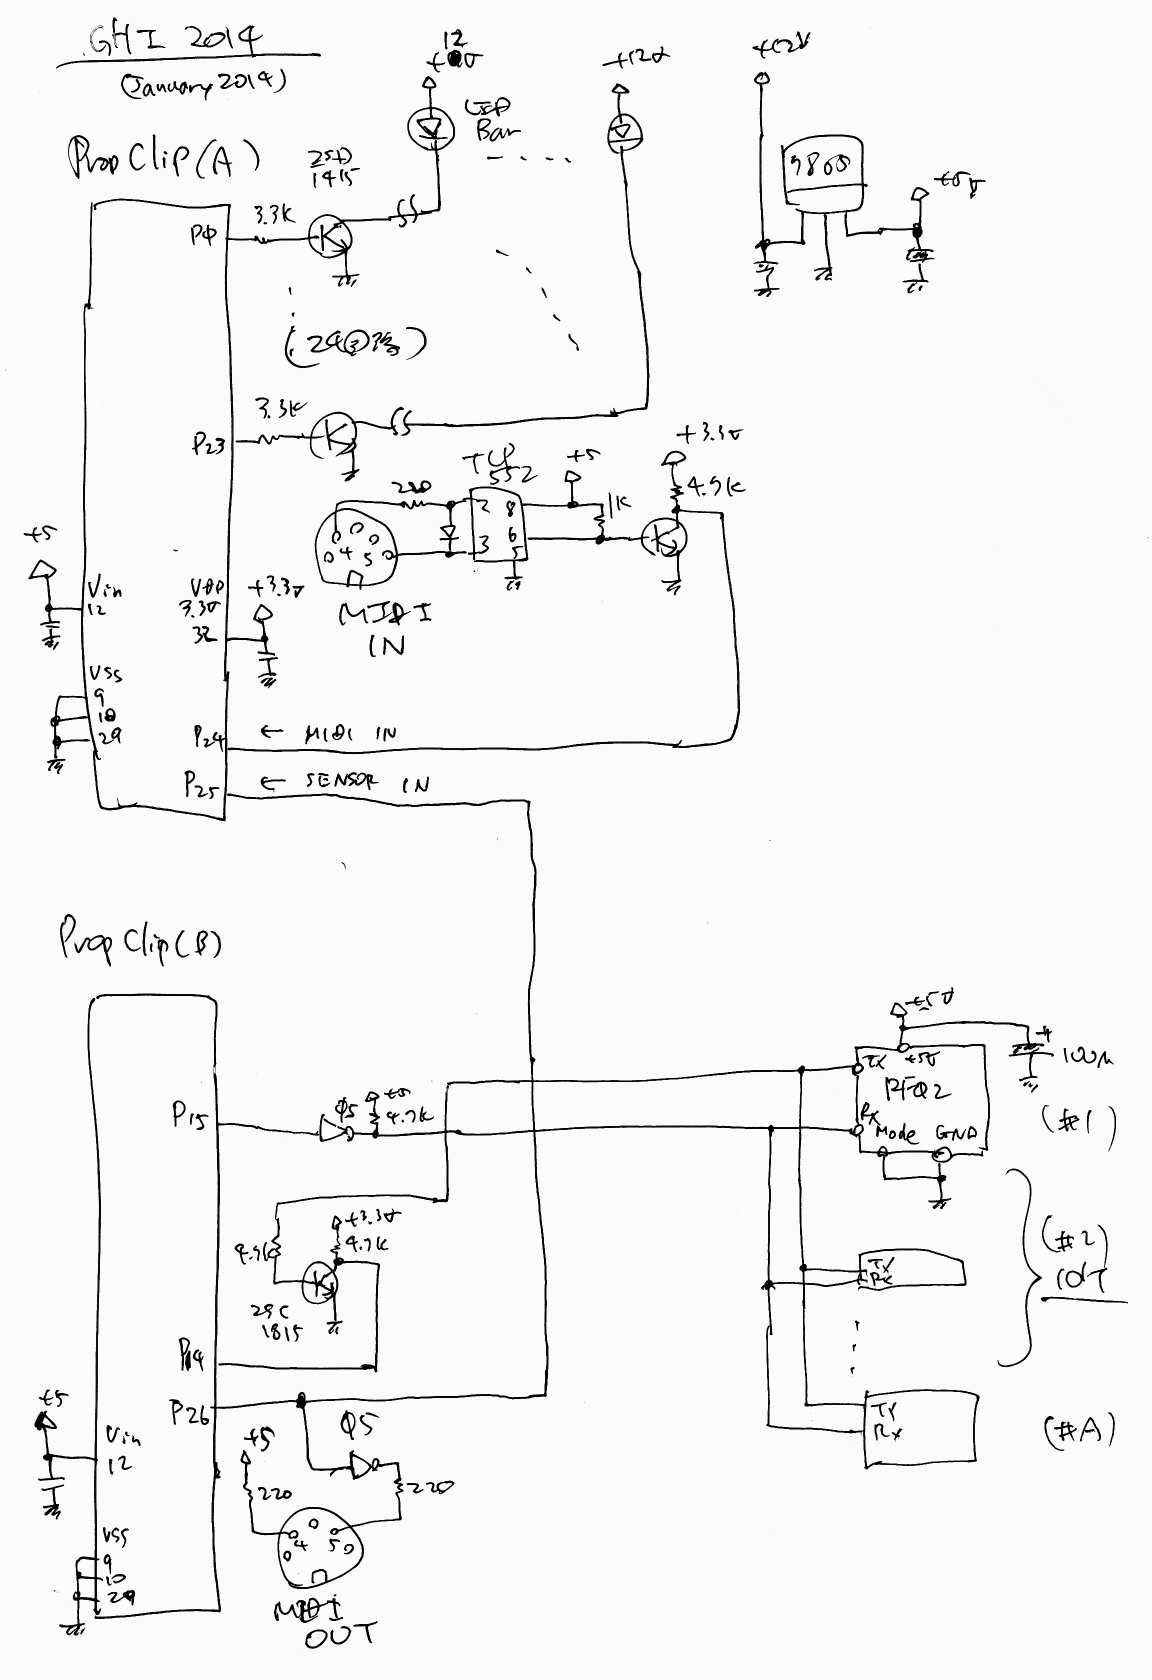 GHI 2014
(January 2014)
12
+12V
+12V
LED
Bar
PropClip(A)
2SD
1415
3.3K
P0
+5V
3.3K
P23
+3.3V
4.7K
+5
1K
TLP
552
220
2
8
3
6
5
4
5
MIDI
IN
+5
Vin
12
VDD
3.3V
32
+3.3V
VSS
9
10
29
P24
← MIDI IN
P25
← SENSOR IN
PropClip(B)
+5V
+
100μ
TX
+5V
RX
Mode
GND
(#1)
P15
05
+5
4.7K
+3.3V
4.7K
4.7K
2SC
1815
P14
P26
(#2)
TX
RX
TX
RX
(#A)
+5
Vin
12
+5
220
05
220
4
5
VSS
9
10
29
MIDI
OUT